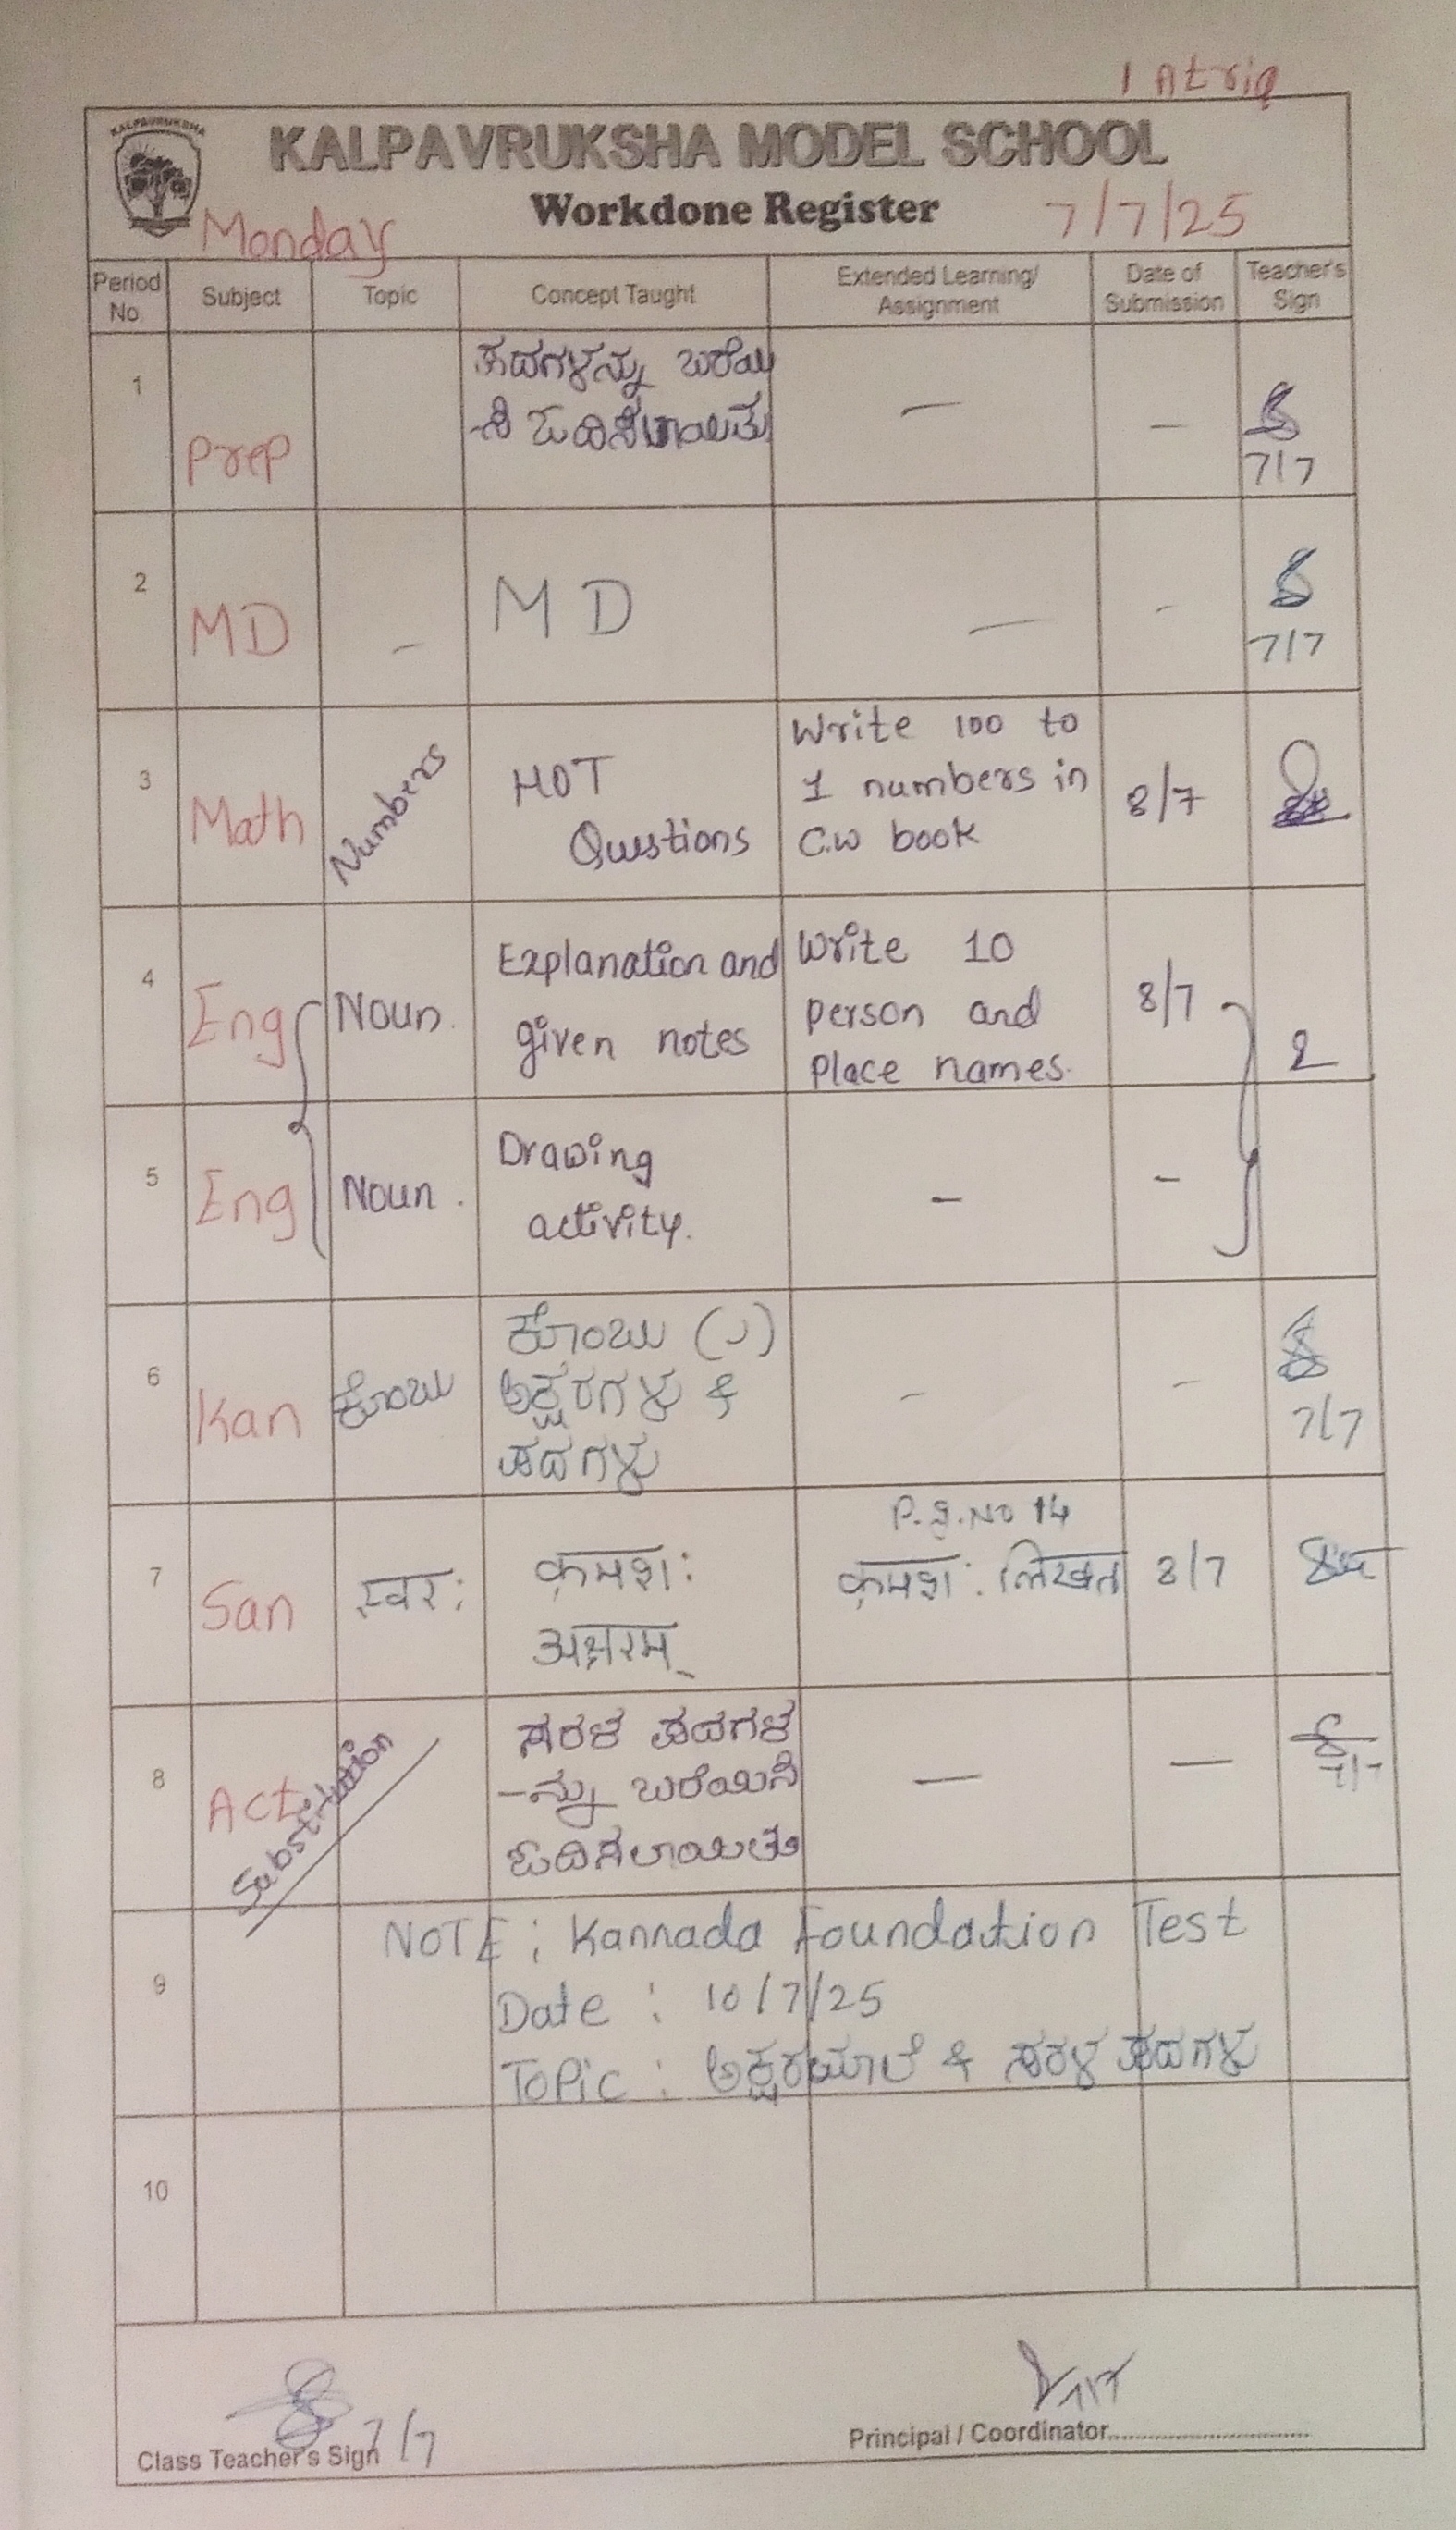 1 Atria
KALPAVRUKSHA
KALPAVRUKSHA MODEL SCHOOL
Workdone Register
Monday
7/7/25
Period No. Subject Topic Concept Taught Extended Learning/ Assignment Date of Submission Teacher's Sign
1 Prep ಪದಗಳನ್ನು ಬರೆಯಿ — — 7/7
-ಸಿ ಓದಿಸಲಾಯಿತು
2 MD - MD — - 7/7
3 Math Numbers HOT Write 100 to 8/7
Questions 1 numbers in
C.W book
4 Eng Noun. Explanation and Write 10 8/7
given notes person and
Place names.
5 Eng Noun. Drawing - -
activity.
6 Kan ಕೊಂಬು ಕೊಂಬು (ು) - - 7/7
ಅಕ್ಷರಗಳು &
ಪದಗಳು
7 San स्वर: क्रमश: P.g.No 14 8/7
अक्षरम् क्रमश: लिखत
8 Act Substitution ಸರಳ ಪದಗಳ — — 7/7
-ನ್ನು ಬರೆಯಿಸಿ
ಓದಿಸಲಾಯಿತು
9 NOTE: Kannada Foundation Test
Date: 10/7/25
Topic: ಅಕ್ಷರಮಾಲೆ & ಸರಳ ಪದಗಳು
10
7/7
Class Teacher's Sign
Principal / Coordinator